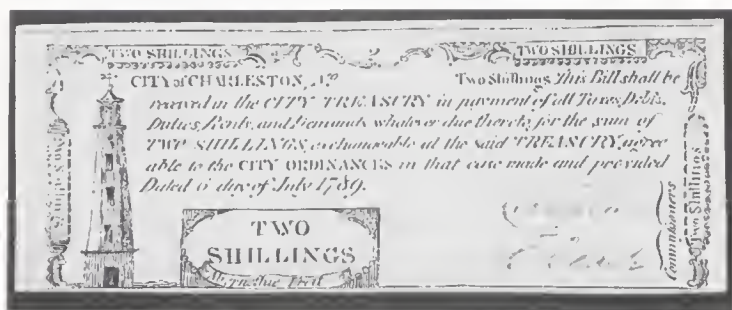 TWO SHILLINGS
TWO SHILLINGS
CITY of CHARLESTON, No
Two Shillings This Bill shall be
received in the CITY TREASURY in payment of all Taxes, Debts,
Duties, Rents, and Demands whatever due thereto, for the sum of
TWO SHILLINGS, exchangeable at the said TREASURY, agree
able to the CITY ORDINANCES in that case made and provided
Dated day of July 1789.
TWO
SHILLINGS
Commissioners
Two Shillings